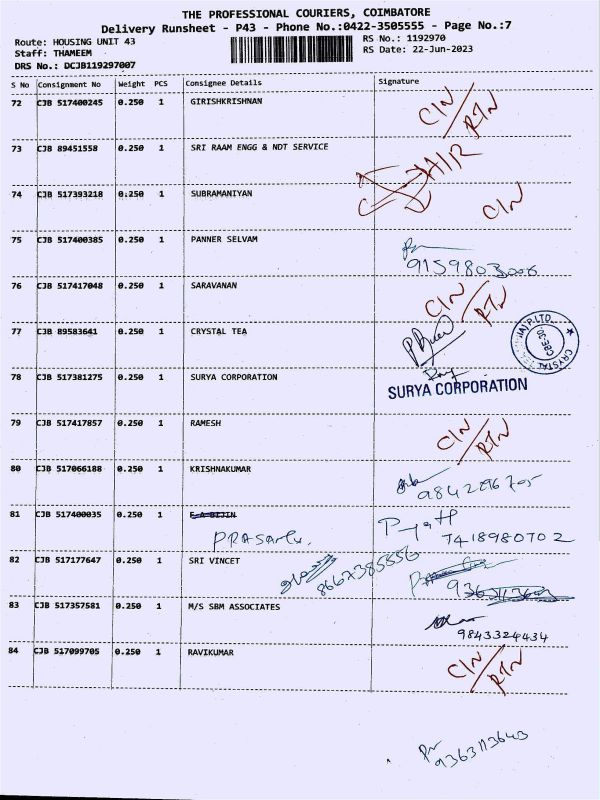 THE PROFESSIONAL COURIERS, COIMBATORE
Delivery Runsheet - P43 - Phone No.:0422-3505555 - Page No.:7
Route: HOUSING UNIT 43 RS No.: 1192970
Staff: THAMEEM RS Date: 22-Jun-2023
DRS No.: DCJB119297007
S No Consignment No Weight PCS Consignee Details Signature
72 CJB 517400245 0.250 1 GIRISHKRISHNAN C/N/RTN
73 CJB 89451558 0.250 1 SRI RAAM ENGG & NDT SERVICE
74 CJB 517393218 0.250 1 SUBRAMANIYAN C/N
75 CJB 517400385 0.250 1 PANNER SELVAM
9159803006
76 CJB 517417048 0.250 1 SARAVANAN C/N/RTN
77 CJB 89583641 0.250 1 CRYSTAL TEA
78 CJB 517381275 0.250 1 SURYA CORPORATION
SURYA CORPORATION
79 CJB 517417857 0.250 1 RAMESH C/N/RTN
80 CJB 517066188 0.250 1 KRISHNAKUMAR
81 CJB 517400035 0.250 1
7418980702
82 CJB 517177647 0.250 1 SRI VINCET 8667385556
83 CJB 517357581 0.250 1 M/S SBM ASSOCIATES
9843324434
84 CJB 517099705 0.250 1 RAVIKUMAR C/N/RTN
9363113643